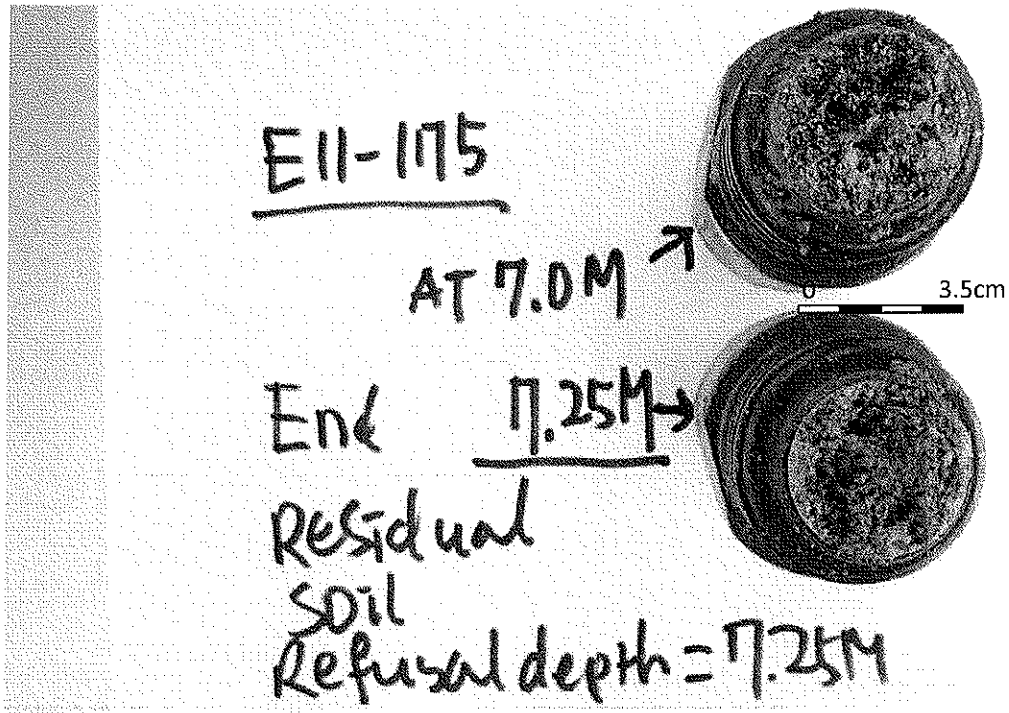 E11-175
AT 7.0M
0 3.5cm
End 7.25M
Residual
Soil
Refusal depth = 7.25M